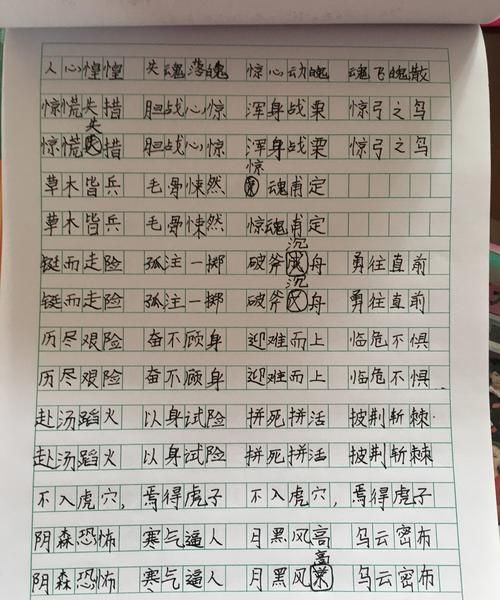 人心惶惶 失魂落魄 惊心动魄 魂飞魄散
惊慌失措 胆战心惊 浑身战栗 惊弓之鸟
惊慌失措 胆战心惊 浑身战栗 惊弓之鸟
草木皆兵 毛骨悚然 惊魂甫定
草木皆兵 毛骨悚然 惊魂甫定
铤而走险 孤注一掷 破斧沉舟 勇往直前
铤而走险 孤注一掷 破斧沉舟 勇往直前
历尽艰险 奋不顾身 迎难而上 临危不惧
历尽艰险 奋不顾身 迎难而上 临危不惧
赴汤蹈火 以身试险 拼死拼活 披荆斩棘
赴汤蹈火 以身试险 拼死拼活 披荆斩棘
不入虎穴，焉得虎子 不入虎穴，焉得虎子
阴森恐怖 寒气逼人 月黑风高 乌云密布
阴森恐怖 寒气逼人 月黑风高 乌云密布